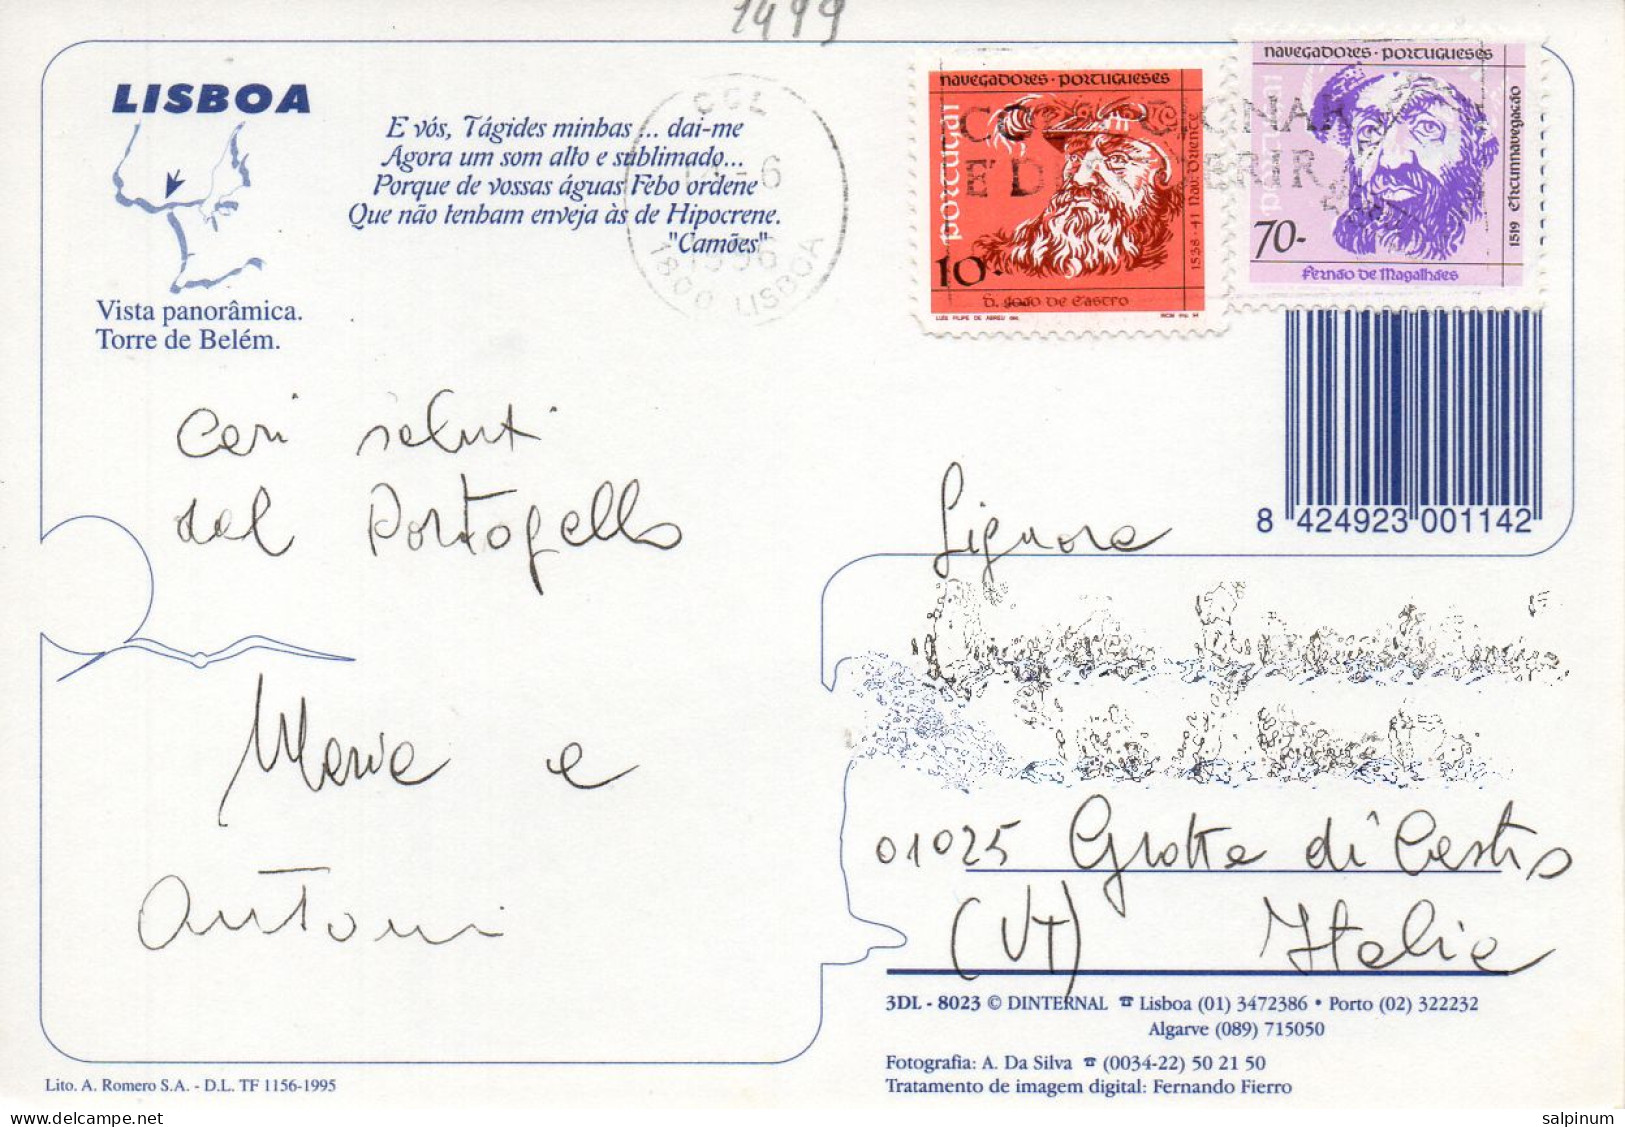 1499
LISBOA
E vós, Tágides minhas ... dai-me
Agora um som alto e sublimado...
Porque de vossas águas Febo ordene
Que não tenham enveja às de Hipocrene.
"Camões"
Vista panorâmica.
Torre de Belém.
CCL
14 - 6
1996
1800 LISBOA
navegadores · portugueses
portugal
1538 · 41 Nav. Duence
10·-
D. João de Castro
LUÍS FILIPE DE ABREU des.
INCM imp. 94
navegadores · portugueses
portugal
1519 Circumnavegação
70·-
Fernão de Magalhães
COLECIONAR
É DESCOBRIR
8 424923 001142
Cari saluti
dal Portogallo
Maria e
Antoni
Signora
01025 Grotte di Castro
(VT) Italia
3DL - 8023 © DINTERNAL ☎ Lisboa (01) 3472386 • Porto (02) 322232
Algarve (089) 715050
Fotografia: A. Da Silva ☎ (0034-22) 50 21 50
Tratamento de imagem digital: Fernando Fierro
Lito. A. Romero S.A. - D.L. TF 1156-1995
salpinum